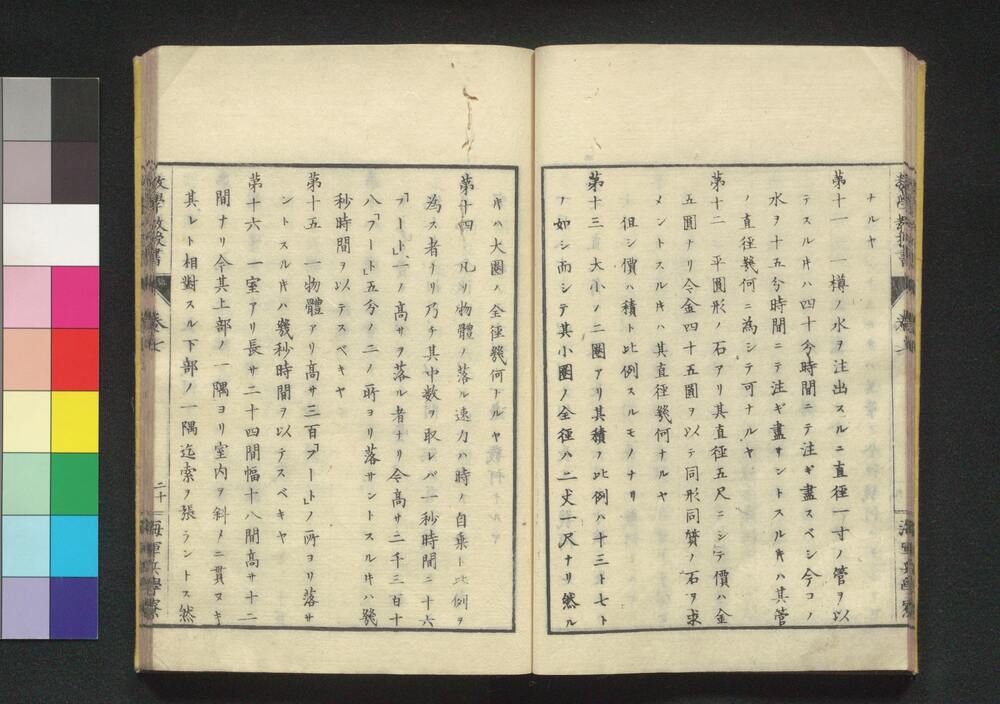 ナルヤ
第十一 一樽ノ水ヲ注出スルニ直徑一寸ノ管ヲ以
テスル𪜈ハ四十分時間ニテ注ギ盡スベシ今コノ
水ヲ十五分時間ニテ注ギ盡サントスル𪜈ハ其管
ノ直徑幾何ニ為シテ可ナルヤ
第十二 平圓形ノ石アリ其直徑五尺ニシテ價ハ金
五圓ナリ今金四十五圓ヲ以テ同形同質ノ石ヲ求
メントスル𪜈ハ其直徑幾何ナルヤ
但シ價ハ積ト比例スルモノナリ
第十三 大小ノ二圏アリ其積ノ比例ハ十三ト七ト
ノ如シ而シテ其小圏ノ全徑ハ二丈二尺ナリ然ル
𪜈ハ大圏ノ全徑幾何ナルヤ
第十四 凡ソ物體ノ落ル速力ハ時ノ自乗ト比例ヲ
為ス者ナリ乃チ其中数ヲ取レバ一秒時間ニ十六
「フート」一ノ高サヲ落ル者ナリ今高サ二千三百十
八「フート」五分ノ二ノ所ヨリ落サントスル𪜈ハ幾
秒時間ヲ以テスベキヤ
第十五 一物體アリ高サ三百「フート」ノ所ヨリ落サ
ントスル𪜈ハ幾秒時間ヲ以テスベキヤ
第十六 一室アリ長サ二十四間幅十八間高サ十二
間ナリ今其上部ノ一隅ヨリ室内ヲ斜メニ貫ヌキ
其レト相對スル下部ノ一隅迄索ヲ張ラントス然
數學教授書
卷七
二十
海軍兵學寮